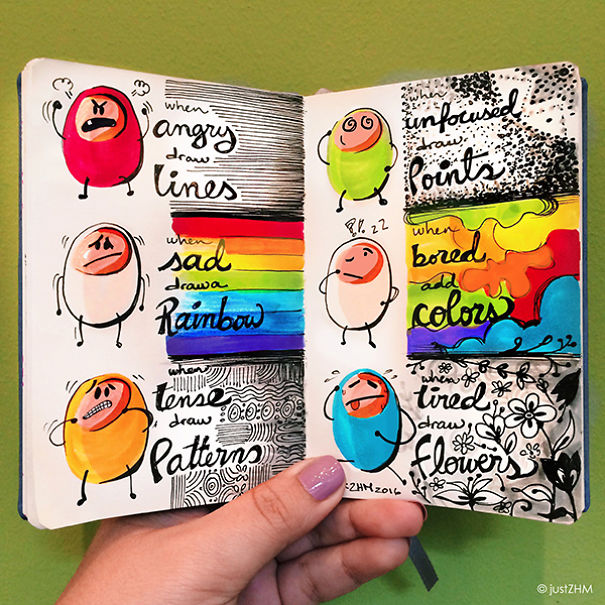 when
angry
draw
Lines
when
sad
draw a
Rainbow
when
tense
draw
Patterns
when
unfocused
draw
Points
when
bored
add
colors
when
tired
draw
flowers
ZHM 2016
© justZHM